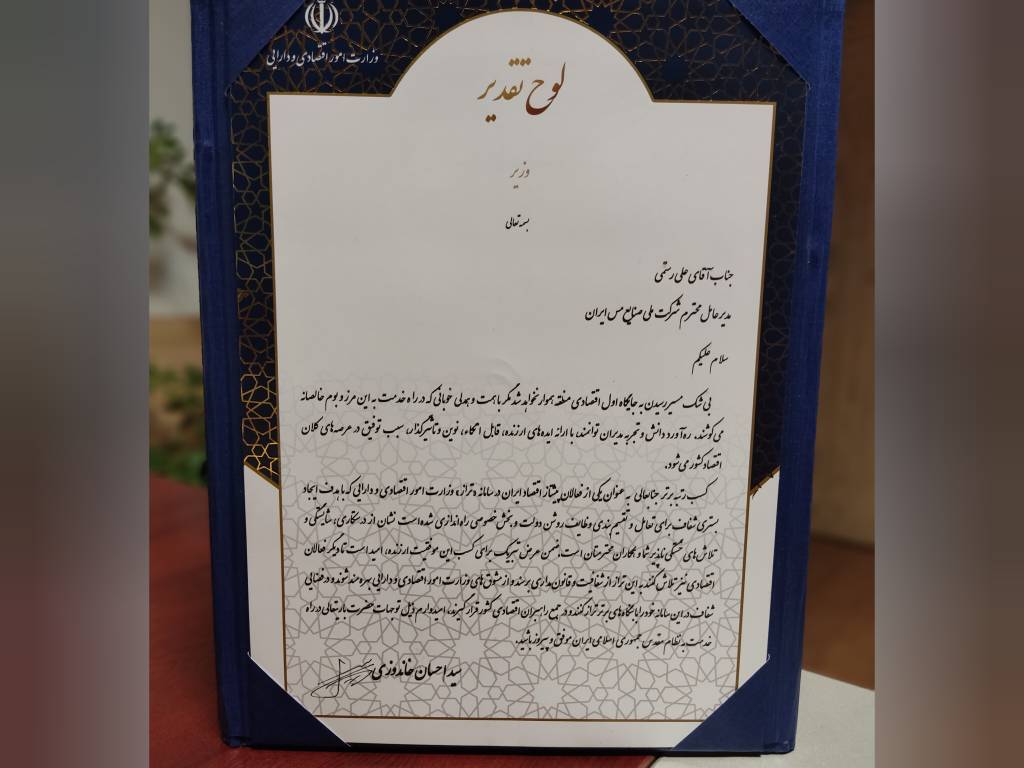 وزارت امور اقتصادی و دارایی
لوح تقدیر
وزیر
بسمه تعالی
جناب آقای علی رستمی
مدیر عامل محترم شرکت ملی صنایع مس ایران
سلام علیکم
بی شک مسیر رسیدن به جایگاه اول اقتصادی منطقه هموار نخواهد شد مگر با همت و همدلی خوبانی که در راه خدمت به این مرز و بوم خالصانه
می کوشند. ره آورد دانش و تجربه مدیران توانمند، با ارائه ایده های ارزنده، قابل اتکاء، نوین و تاثیرگذار، سبب توفیق در عرصه های کلان
اقتصاد کشور می شود.
کسب رتبه برتر جنابعالی به عنوان یکی از فعالان پیشتاز اقتصاد ایران در سامانه «تراز» وزارت امور اقتصادی و دارایی که با هدف ایجاد
بستری شفاف برای تعامل و تقسیم بندی وظایف روشن دولت و بخش خصوصی راه اندازی شده است نشان از درستکاری، شایستگی و
تلاش های خستگی ناپذیر شما و همکاران محترمتان است. ضمن عرض تبریک برای کسب این موفقیت ارزنده، امید است تا دیگر فعالان
اقتصادی نیز تلاش کنند به این تراز از شفافیت و قانون مداری برسند و از مشوق های وزارت امور اقتصادی و دارایی بهره مند شوند و در فضایی
شفاف در این سامانه خود را با بنگاه های برتر تراز کنند و در جمع راهبران اقتصادی کشور قرار گیرند. امیدوارم ذیل توجهات حضرت باریتعالی در راه
خدمت به نظام مقدس جمهوری اسلامی ایران موفق و پیروز باشید.
سید احسان خاندوزی